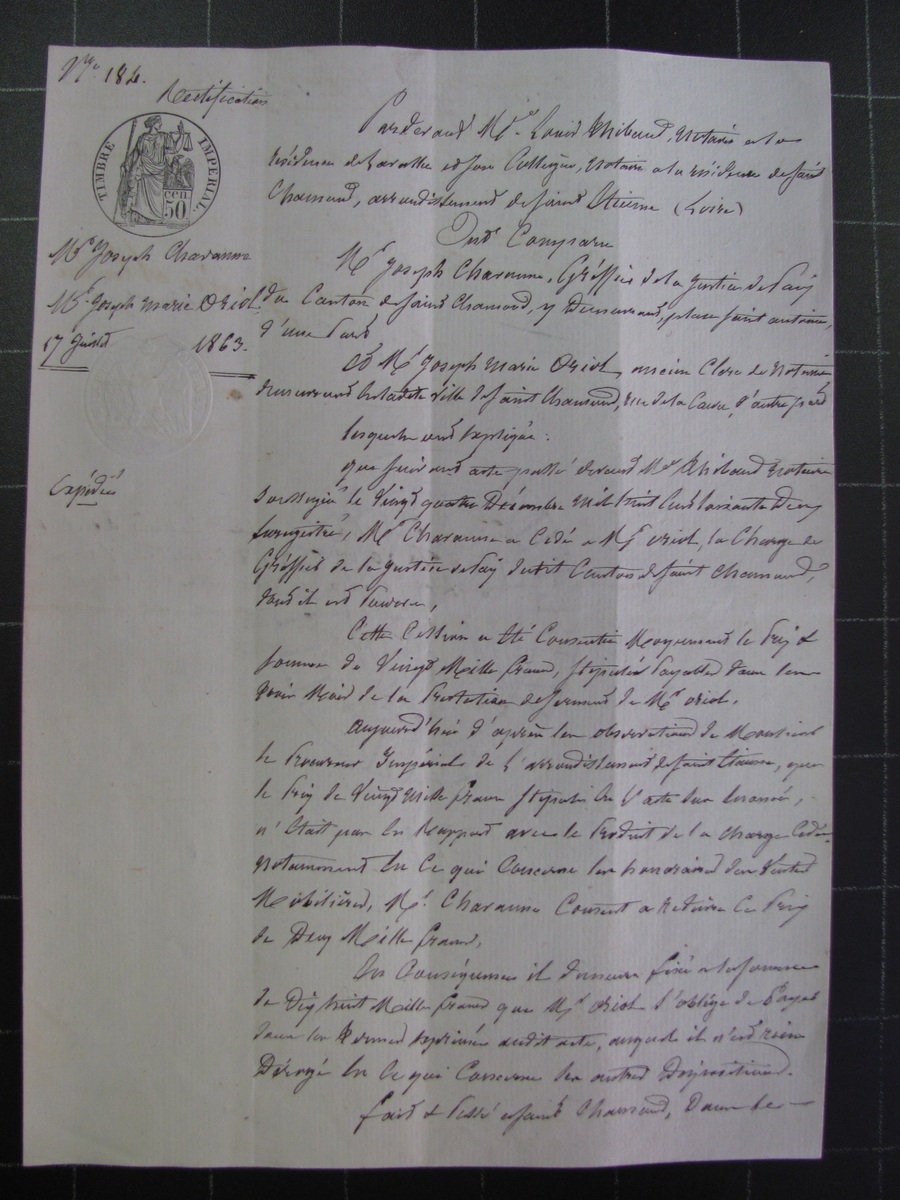 No 184.
Rectification
TIMBRE IMPERIAL
50 cen
Mr Joseph Chavanne
Mr Joseph Marie Oriol
17 1863.
Expédiée
Pardevant Me Louis Thibaud, Notaire a la
résidence de et son Collègue, Notaire a la résidence de Saint
Chamond, arrondissement de Saint Etienne (Loire)
Ont Comparu
Mr Joseph Chavanne, Gréffier de la Justice de Paix
du Canton de Saint Chamond, y Demeurant, place Saint antoine,
d'une Part
Et Mr Joseph Marie Oriol, ancien Clerc de Notaire
demeurant en ladite ville de Saint Chamond, rue de la d'autre part
Lesquels ont Expliqué :
que Suivant acte passé devant Me Thibaud Notaire
Soussigné le Vingt quatre Décembre mil huit Cent Soixante Deux
Enregistré, Mr Chavanne a Cédé a Mr oriol, la Charge de
Gréffier de la Justice de Paix dudit Canton de Saint Chamond,
dont il est Pourvu,
Cette Cession a Eté Consentie Moyennant le Prix &
Somme de Vingt Mille francs, Stipulée Payable dans les
trois Mois de la Prestation de Serment de Mr oriol.
aujourd'hui d'après les observations de Monsieur
le Procureur Impérial de l'arrondissement de Saint Etienne, que
le Prix de Vingt Mille francs Stipulé En l'acte Sus Enoncé,
n'était pas En Rapport avec le Produit de la charge Cédée
Notamment En Ce qui Concerne les honoraires des Ventes
Mobilières, Mr Chavanne Consent a Réduire Ce Prix
de Deux Mille francs,
En Conséquence il demeure fixé a la Somme
de Dix huit Mille francs que Mr oriol S'oblige de Payer
dans les Termes Exprimés audit acte, auquel il n'est rien
Dérogé En Ce qui Concerne Ses autres Dispositions.
fait & Passé a Saint Chamond, Dans